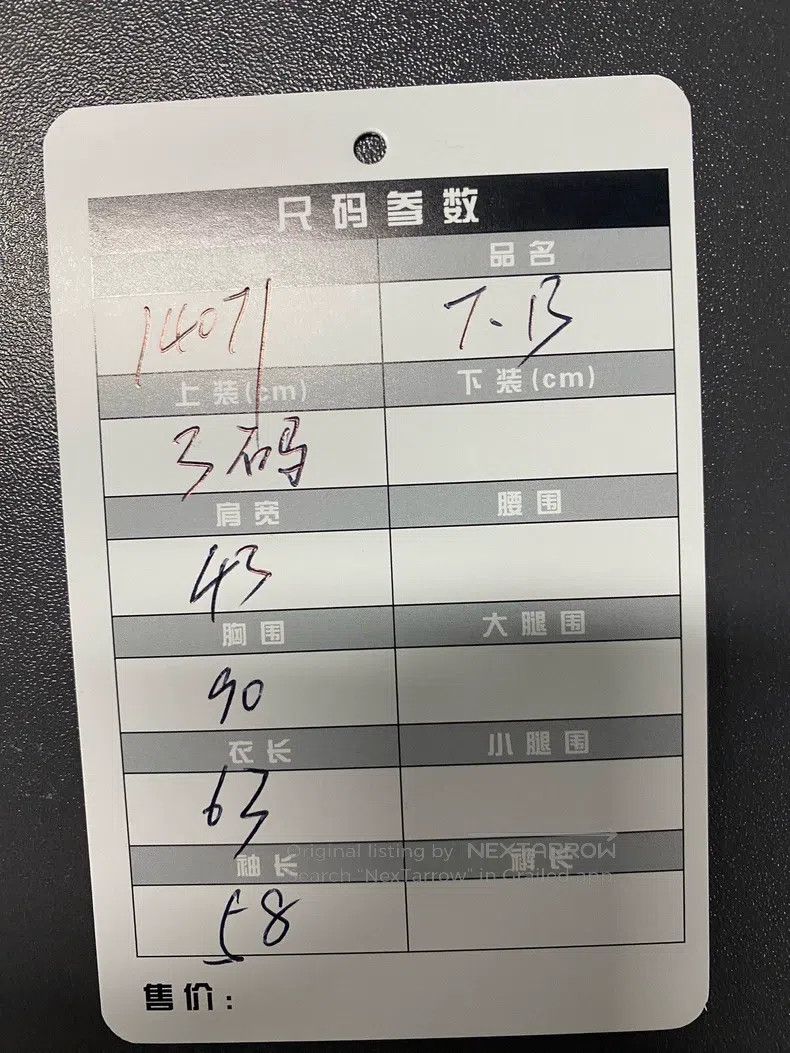 尺码参数
品名
14071 T.B
上装(cm) 下装(cm)
3码
肩宽 腰围
43
胸围 大腿围
90
衣长 小腿围
63
Original listing by NEXTARROW
袖长 裤长
Search "NexTarrow" in Grailed app
58
售价: